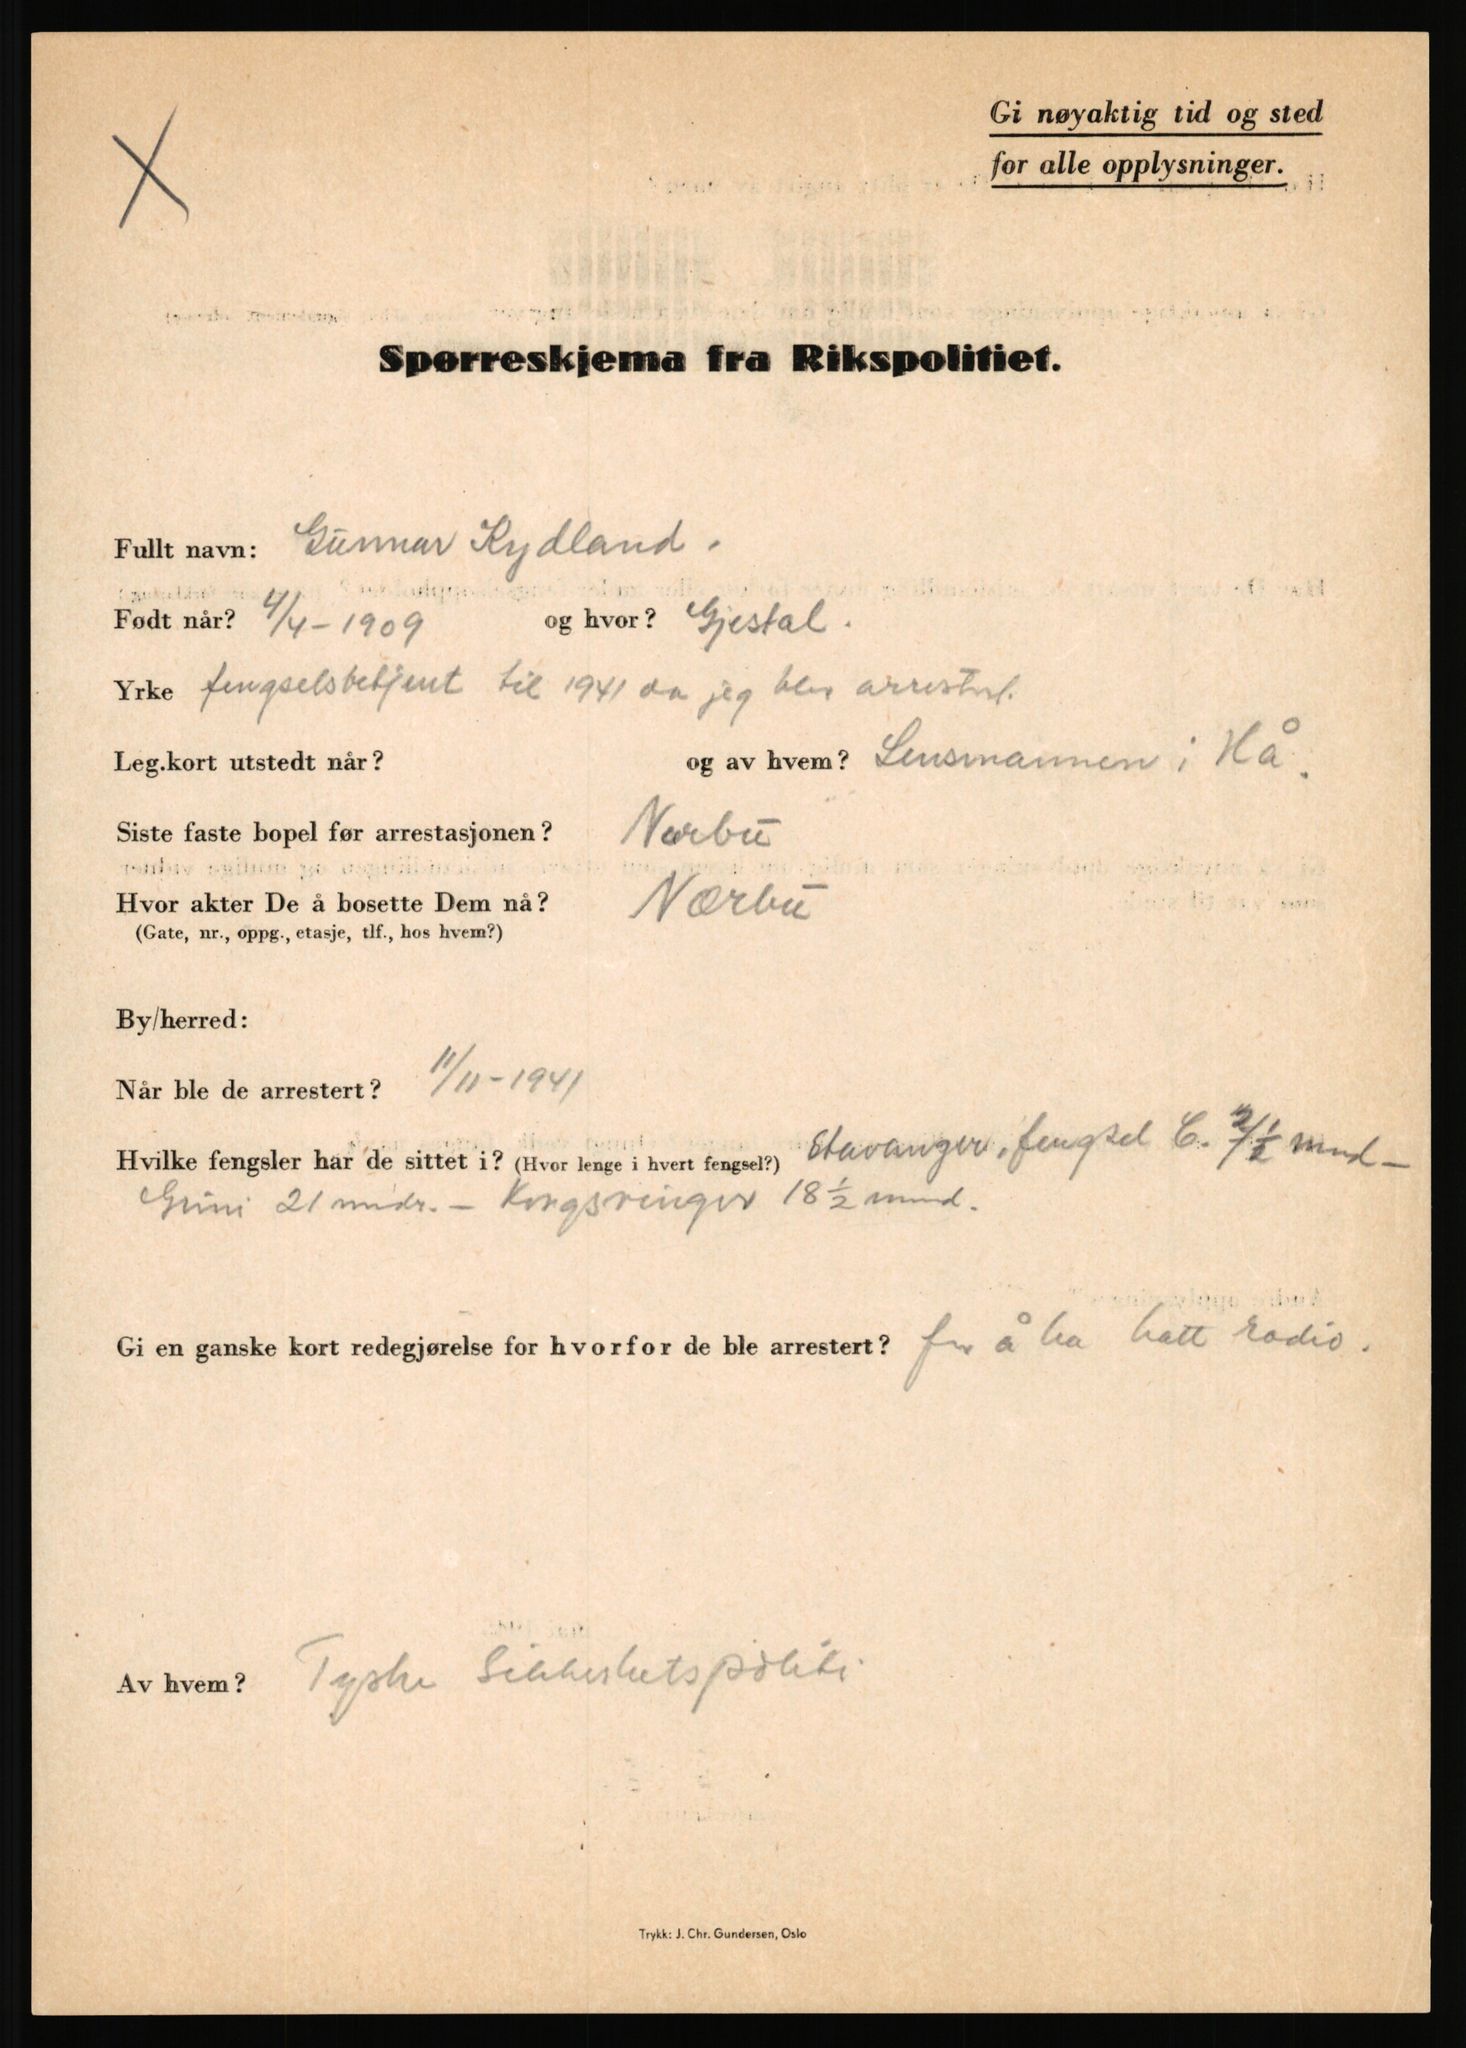 Gi nøyaktig tid og sted
for alle opplysninger.
Spørreskjema fra Rikspolitiet.
Fullt navn: Gunnar Kydland.
Født når? 4/4-1909 og hvor? Gjestal.
Yrke fengselsbetjent til 1941 da jeg blev arrestert.
Leg.kort utstedt når? og av hvem? Lensmannen i Hå.
Siste faste bopel før arrestasjonen? Nærbu
Hvor akter De å bosette Dem nå? Nærbu
(Gate, nr., oppg., etasje, tlf., hos hvem?)
By/herred:
Når ble de arrestert? 11/11-1941
Hvilke fengsler har de sittet i? (Hvor lenge i hvert fengsel?) Stavanger, fengsel C. 1/2 mnd –
Grini 21 mndr. – Kongsvinger 18 1/2 mnd.
Gi en ganske kort redegjørelse for hvorfor de ble arrestert? for å ha hatt radio.
Av hvem? Tyske Sikkerhetspoliti
Trykk: J. Chr. Gundersen, Oslo